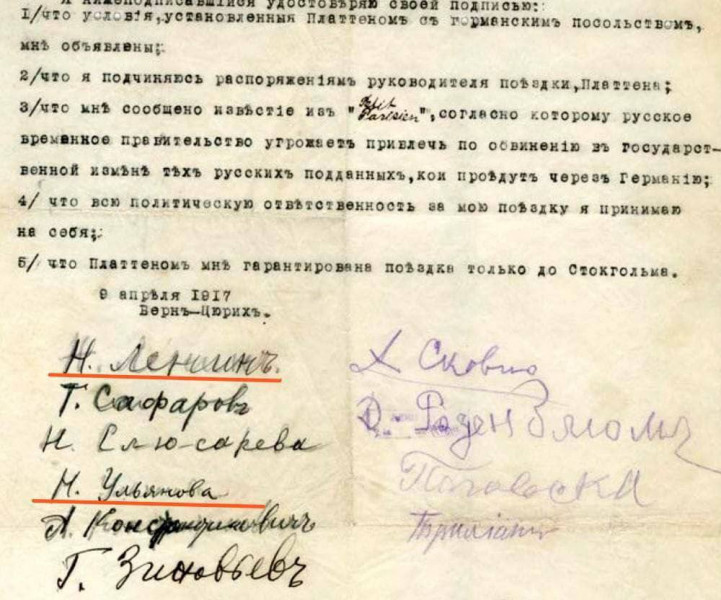 Я нижеподписавшійся удостоверяю своей подписью:
1/что условія,установленныя Платтеномъ съ германскимъ посольствомъ,
мнѣ объявлены;
2/что я подчиняюсь распоряженіямъ руководителя поѣздки,Платтена;
3/что мнѣ сообщено извѣстіе изъ "Petit Parisien",согласно которому русское
временное правительство угрожаетъ привлечь по обвиненію въ государст-
венной измѣнѣ тѣхъ русскихъ подданныхъ,кои проѣдутъ черезъ Германію;
4/ что всю политическую отвѣтственность за мою поѣздку я принимаю
на себя;
5/ что Платтеномъ мнѣ гарантирована поѣздка только до Стокгольма.
9 апрѣля 1917
Бернъ-Цюрихъ.
Н. Ленинъ
Г. Сафаровъ
Н. Слюсарева
Н. Ульянова
А. Константиновичъ
Г. Зиновьевъ
А Сковно
Д. Розенблюмъ
Поговска